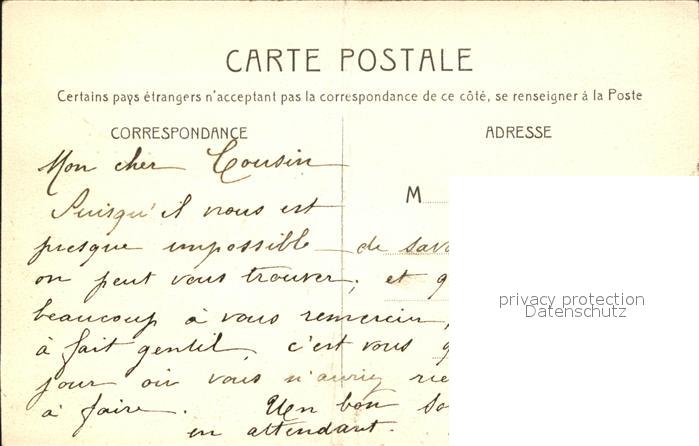 CARTE POSTALE
Certains pays étrangers n'acceptant pas la correspondance de ce côté, se renseigner à la Poste
CORRESPONDANCE
ADRESSE
M
Mon cher Cousin
Puisqu'il nous est
presque impossible de sav
on peut vous trouver, et q
beaucoup à vous remercier,
à fait gentil, c'est vous q
jour où vous n'auriez rie
à faire. Un bon so
en attendant.
privacy protection
Datenschutz